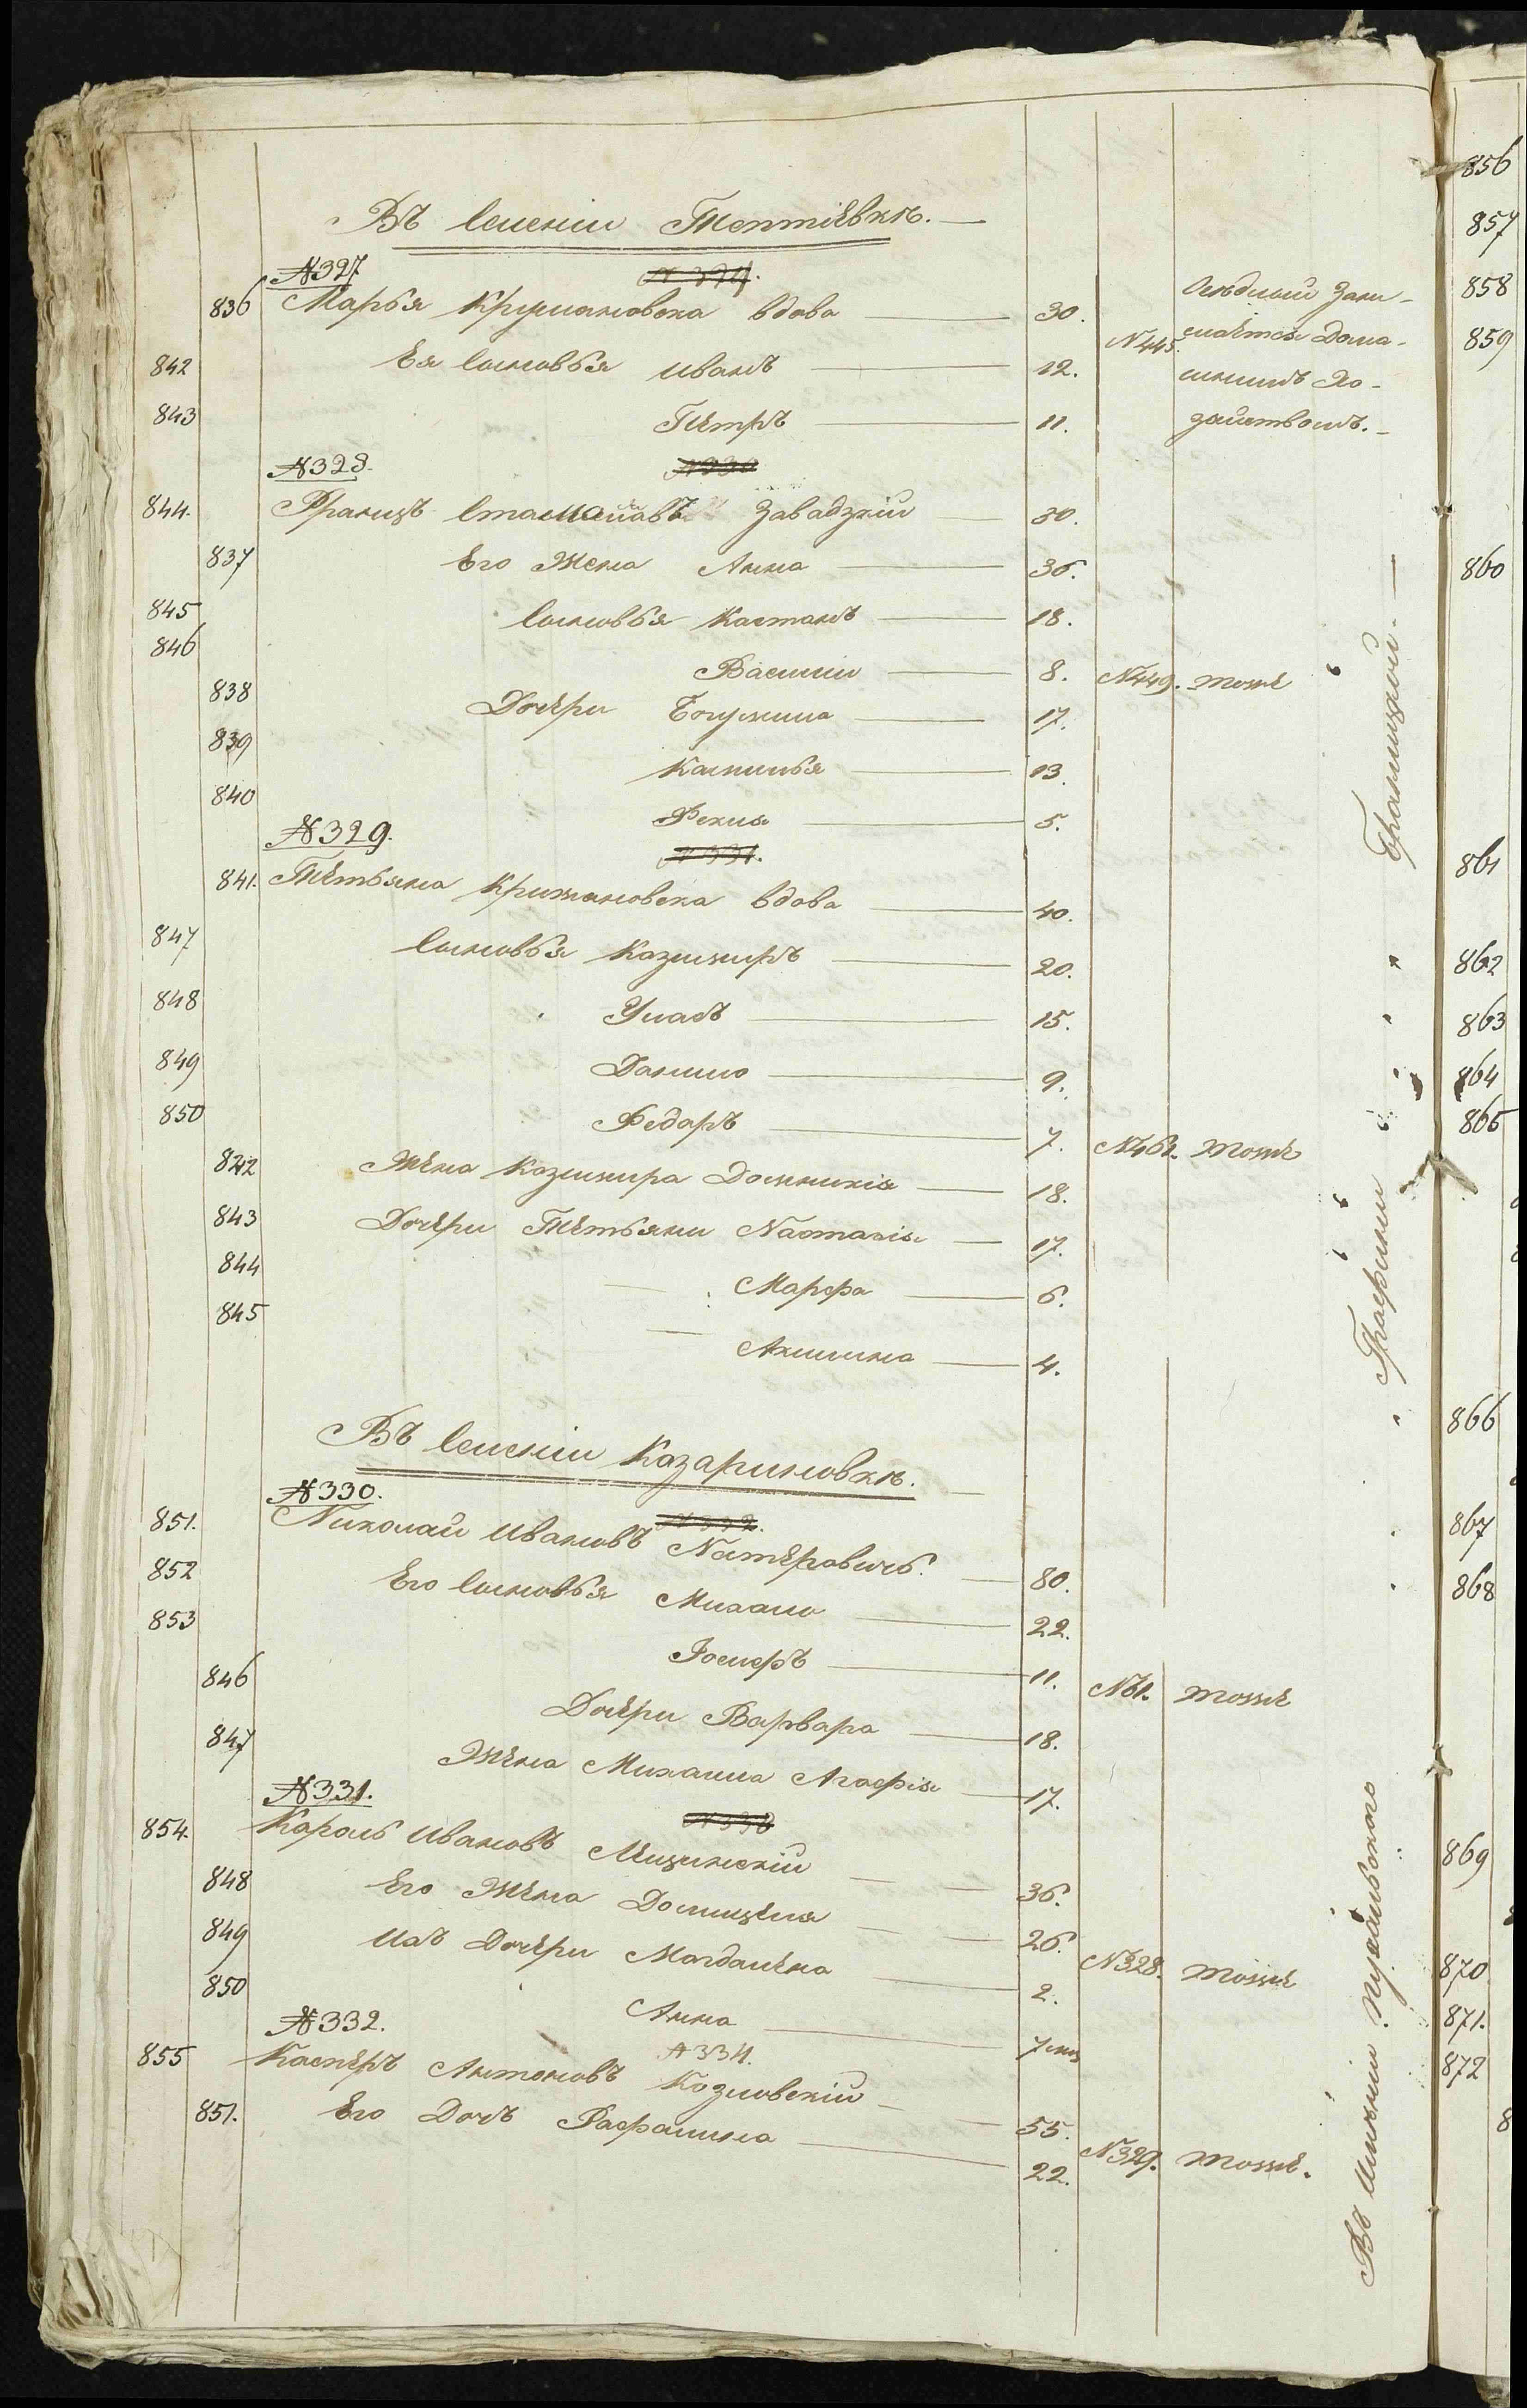 Въ Селеніи Тептіевкѣ.
№327
836 Марья Крушановска вдова 30. Осѣдлый Зани-
№445. мается Дома-
842 Ея Сыновья Иванъ 12. шнимъ Хо-
843 Петръ 11. зяйствомъ.
№328.
844. Францъ Станиславъ Завадзкій 30.
837 Его Жена Анна 36.
845 Сыновья Кастанъ 18.
846 Василій 8. №449. тоже
838 Дочери 17.
839 13.
840 Фекла 5.
№329. №331.
841. Тетьяна Крижановска вдова 40.
847 Сыновья Казимиръ 20.
848 Уласъ 15.
849 Данило 9.
850 Федоръ 7. №461. тоже
842 Жена Казимира Домникія 18.
843 Дочери Тетьяни Насталія 17.
844 Марфа 6.
845 Акилина 4.
Въ Селеніи Казариновкѣ.
№330. №332.
851. Николай Ивановъ Нестеровичъ 80.
852 Его Сыновья Михаило 22.
853 Іосифъ 11. №61. тоже
846 Дочери Варвара 18.
847 Жена Михаила Агафія 17.
№331. №333
854. Кароль Ивановъ Мицинскій 36.
848 Его Жена Домицеля 26.
849 Ихъ Дочери Магдалена 2. №328. тоже
850 Анна 7 мѣс
№332. №334.
855 Касперъ Антоновъ Козловскій 55.
851. Его Дочь 22. №329. тоже.
Въ Имѣніи Графини Браницкой.
856
857
858
859
860
861
862
863
864
865
866
867
868
869
870
871.
872